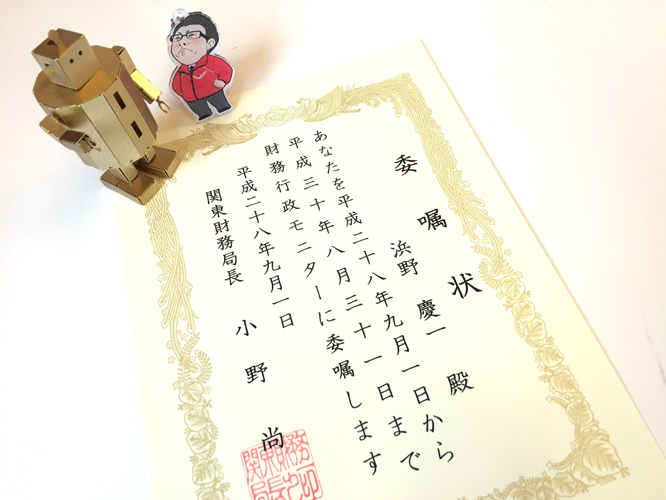 委嘱状
浜野 慶一 殿
あなたを平成二十八年九月一日から
平成三十年八月三十一日まで
財務行政モニターに委嘱します
平成二十八年九月一日
関東財務局長 小野 尚
関東財務
局長之印